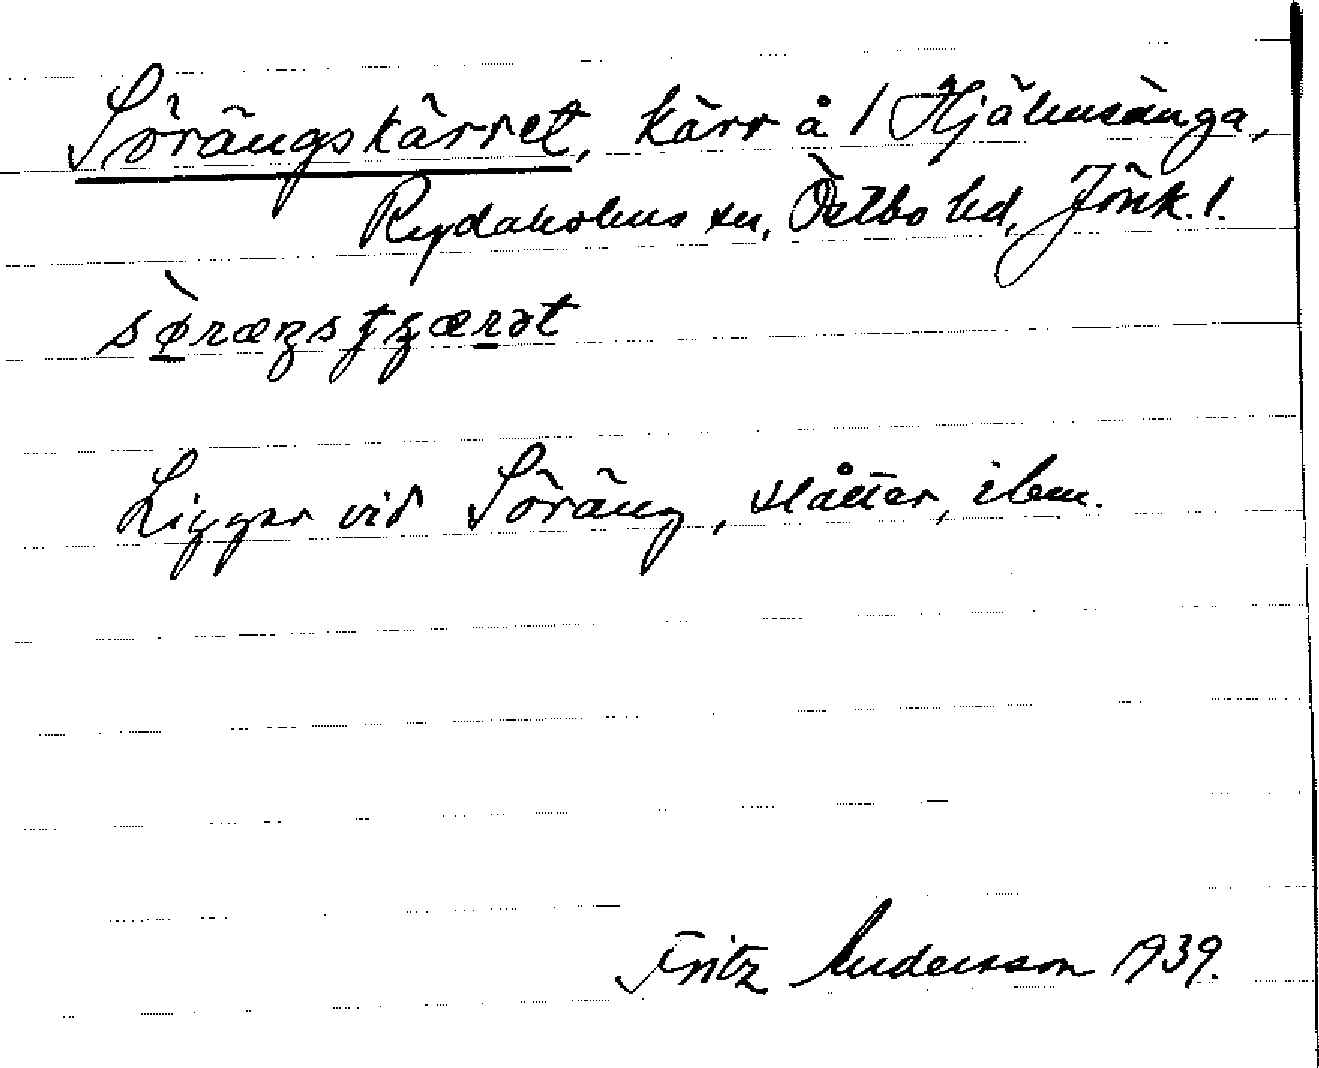 Sörängskärret, kärr å 1 Hjälmsänga,
Rydaholms sn, Östbo hd, Jönk. l.
Ligger vid Söräng, slåtter, ibm.
Fritz Andersson 1939.